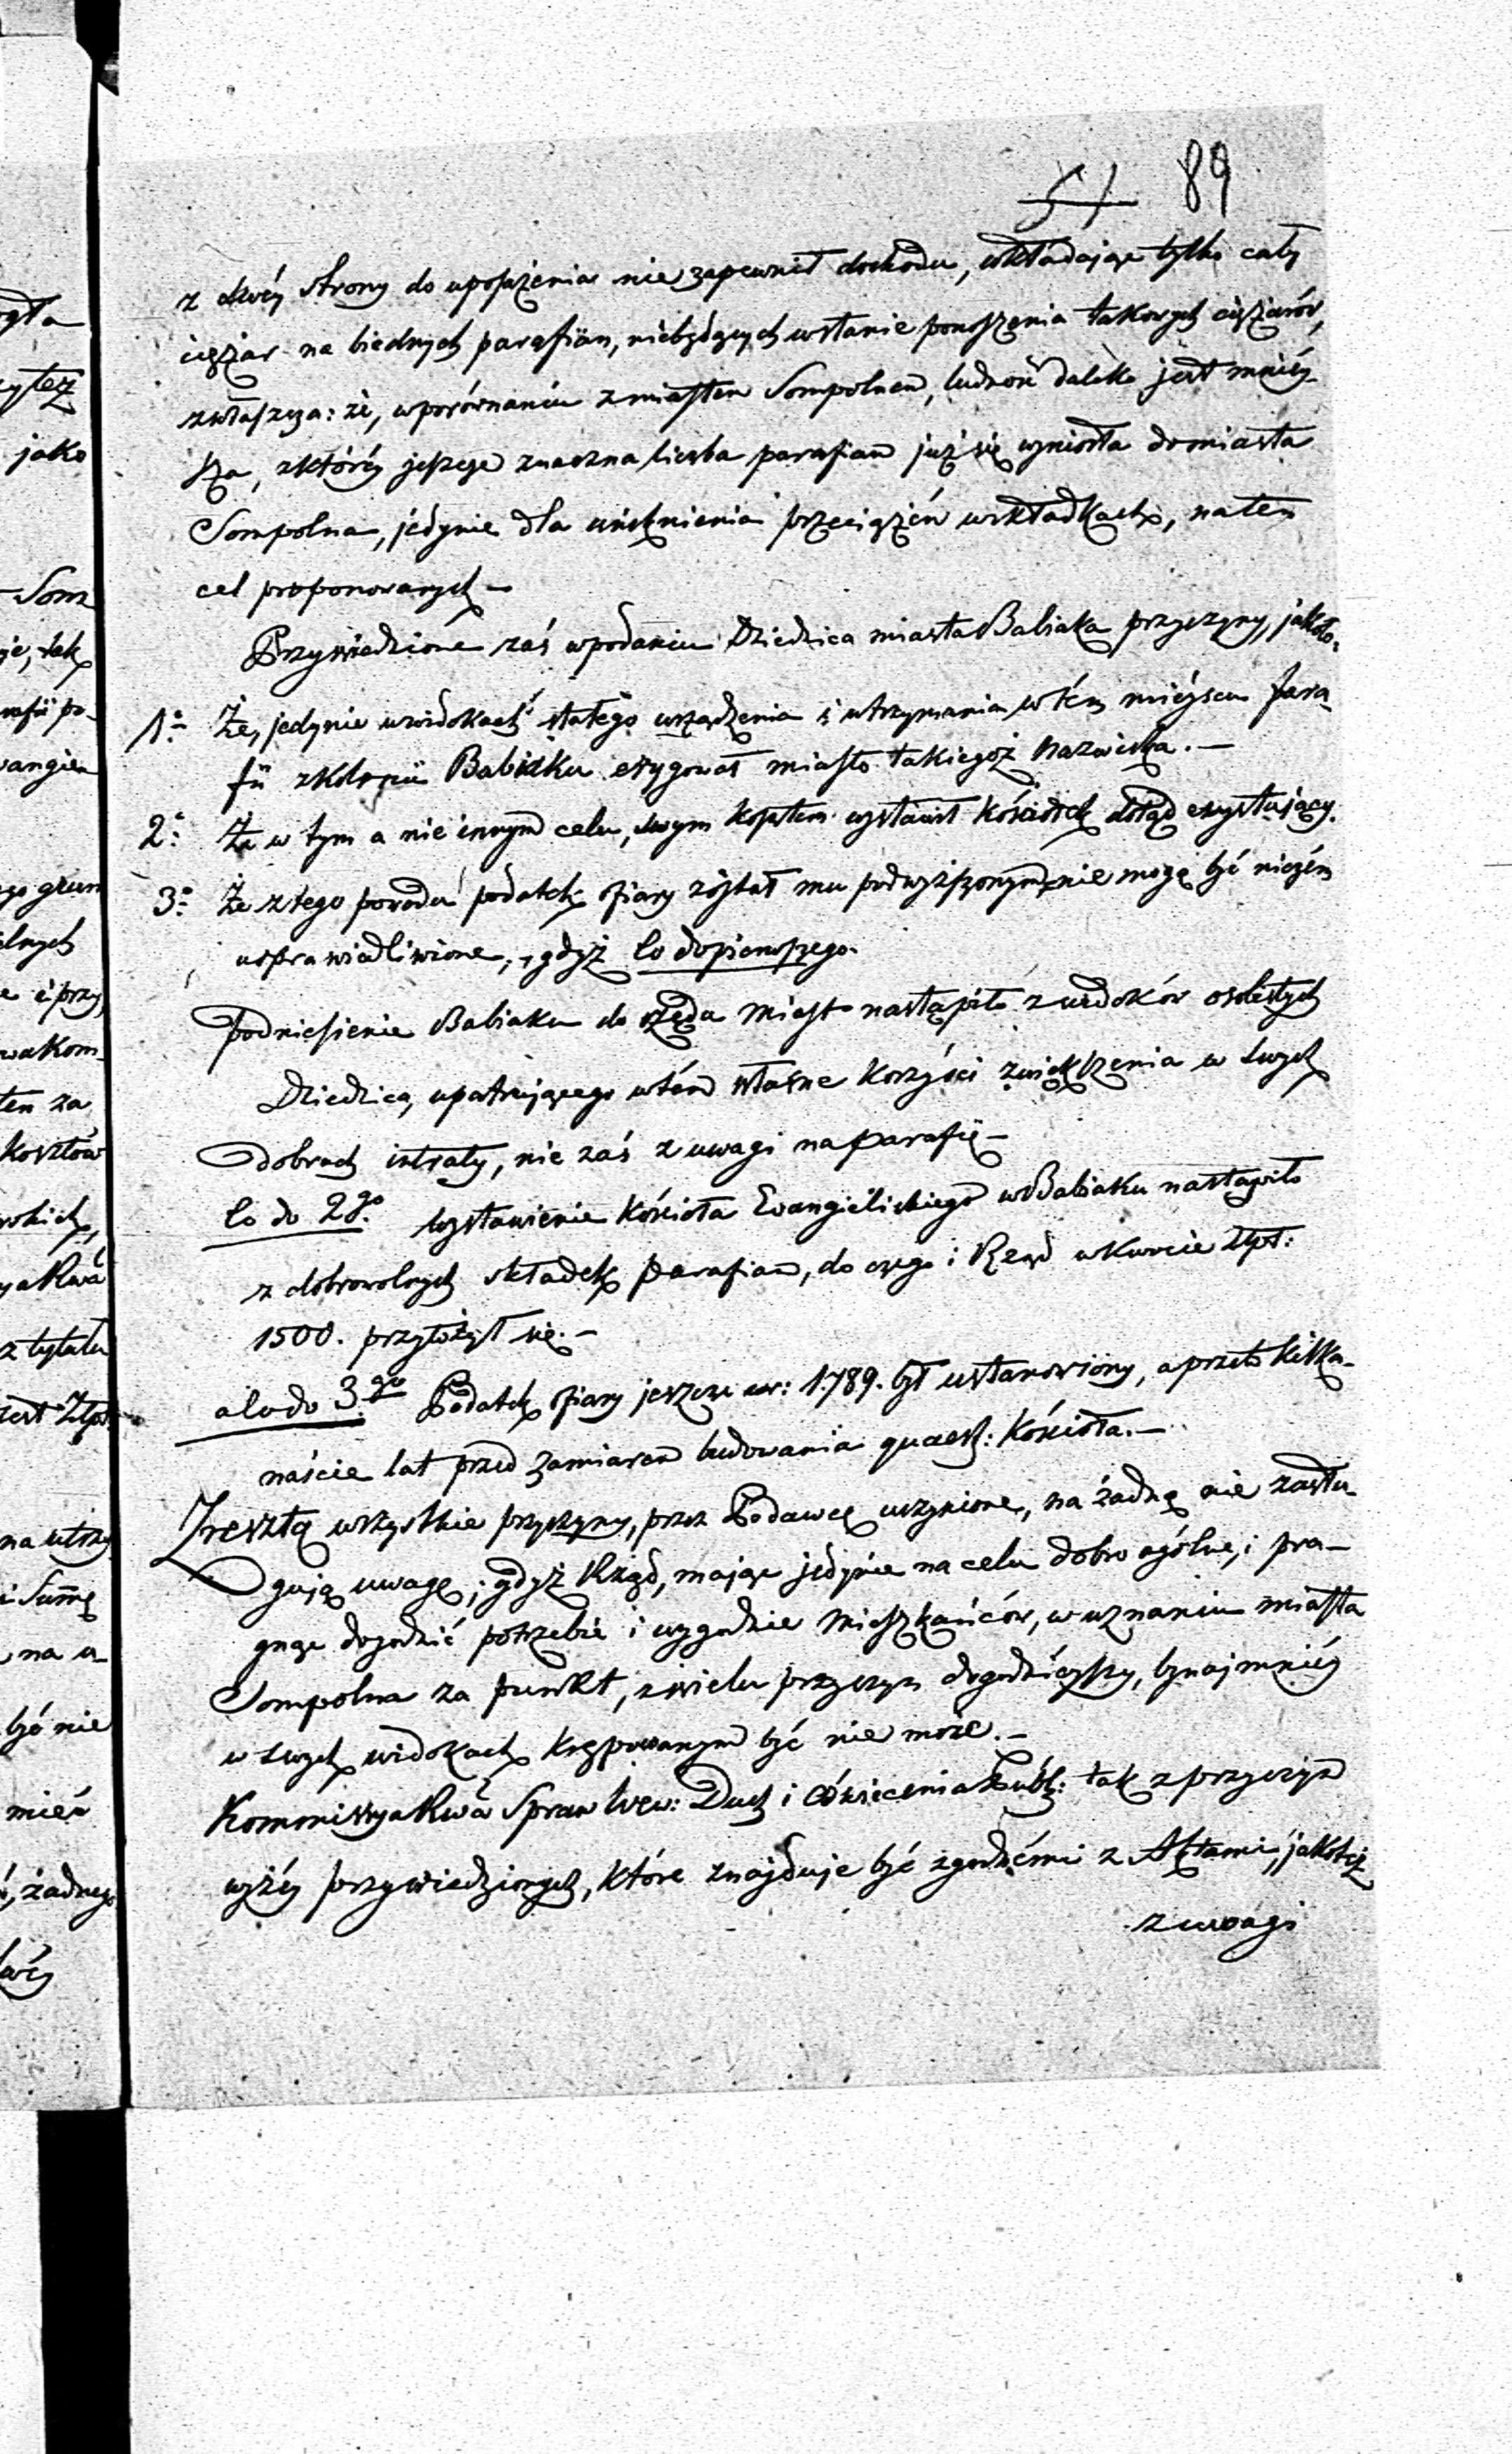 51 89
z swéy strony do uposażenia nie zapewnił dochodu, wkładając tylko cały
ciężar na biednych parafiian, niebędących wstanie ponoszenia takowych ciężarów,
zwłaszcza: że, wporównaniu zmiastem Sompolnem, ludność daleko jest mniéy-
sza, zktóréy jeszcze znaczna liczba parafian już się wyniosła domiasta
Sompolna, jedynie dla uniknienia przeciążeń wskładkach, naten
cel proponowanych —
Przywiedzione zaś wpodaniu Dziedzica miasta Babiaka przyczyny, jakoto:
1° Że, jedynie wwidokach stałego urządzenia i utrzymania wtém miéyscu para-
fii zkolonii Babiaku erygował miasto takiegoż nazwiska. —
2° Że w tym a nie innym celu, swym kosztem wystawił kościołek dotąd exystujący.
3° Że ztego powodu podatek ofiary został mu podwyższonym, nie mogą być niczém
usprawiedliwione, gdyż co dopierwszego.
Podniesienie Babiaku do rzędu Miast nastąpiło zwidoków osobistych
Dziedzica, upatrującego wtém własne korzyści zwiększenia w swych
dobrach intraty, nie zaś z uwagi na parafię —
Co do 2go. wystawienie Kościoła Evangielickiego w Babiaku nastąpiło
z dobrowolnych składek Parafian, do czego i Rząd wkwocie Złpol:
1500. przyłożył się. —
a co do 3go Podatek ofiary jeszcze w r: 1789. był ustanowiony, a przeto kilka-
naście lat przed zamiarem budowania quaest: Kościoła. —
Zresztą wszystkie przyczyny, przez Podawcę uczynione, na żadną nie zasłu-
gują uwagę; gdyż Rząd, mając jedynie na celu dobro ogólne, i pra-
gnąc dogodzić potrzebie i wygodzie Mieszkańców, w uznaniu miasta
Sompolna za punkt, z wielu przyczyn dogodniéyszy, bynajmniéy
w swych widokach krępowanym być nie może. —
Kommissya Rwa Spraw Wew: Duch i Oświecenia Publ: tak z przyczyn
wyżéy przywiedzionych, które znajduje być zgodnémi z Aktami, jakoteż
z uwagi